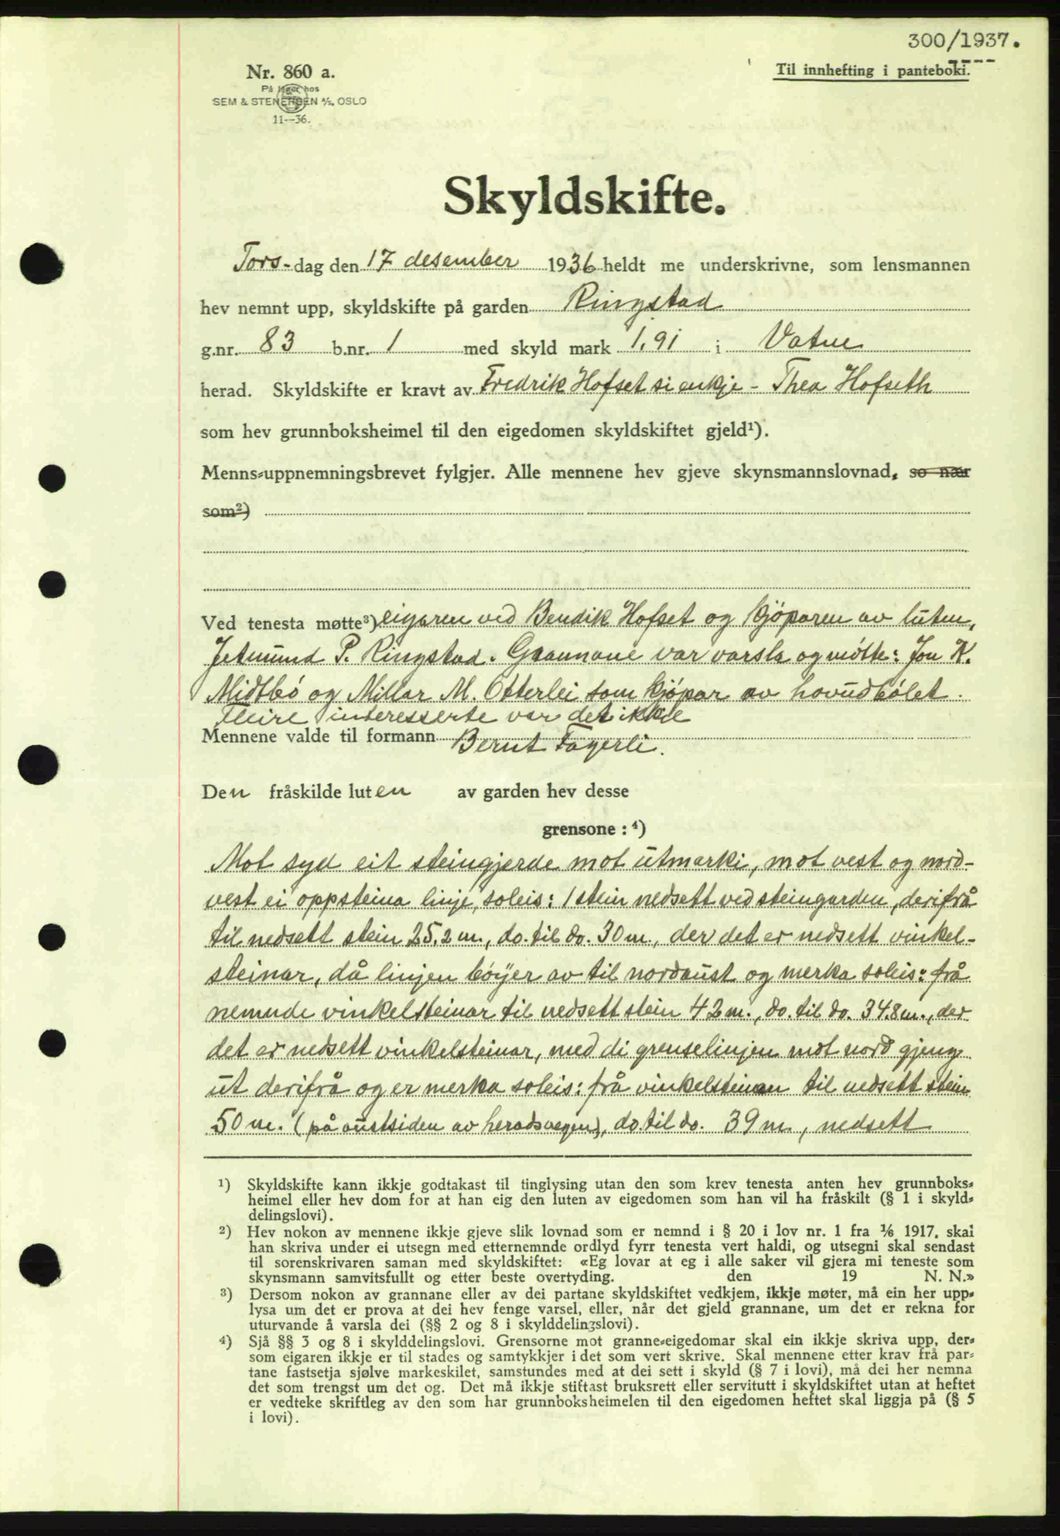 300/1937.
Nr. 860 a.
Til innhefting i panteboki.
På lager hos
SEM & STENERSEN A/S, OSLO
11—36.
Skyldskifte.
Tors-dag den 17 desember 1936 heldt me underskrivne, som lensmannen
hev nemnt upp, skyldskifte på garden Ringstad
g.nr. 83 b.nr. 1 med skyld mark 1,91 i Vatne
herad. Skyldskifte er kravt av Fredrik Hofset si enkje - Thea Hofseth
som hev grunnboksheimel til den eigedomen skyldskiftet gjeld¹).
Menns-uppnemningsbrevet fylgjer. Alle mennene hev gjeve skynsmannslovnad, so nær
som²)
Ved tenesta møtte³) eigaren ved Bendik Hofset og kjöparen av luten,
Jetmund P. Ringstad. Grannane var varsla og møtte: Jon K.
Midtbö og Millar M. Otterlei som kjöpar av hovudbölet.
Fleire interesserte var det ikkje
Mennene valde til formann Bernt Fagerli.
Den fråskilde luten av garden hev desse
grensone : ⁴)
Mot syd eit steingjerde mot utmarki, mot vest og nord-
vest ei oppsteina linje, soleis: 1 stein nedsett ved steingarden, derifrå
til nedsett stein 25,2 m., do. til do. 30 m., der det er nedsett vinkel-
steinar, då linjen böyer av til nordaust og merka soleis: frå
nemnde vinkelsteinar til nedsett stein 42 m., do. til do. 34.8 m., der
det er nedsett vinkelsteinar, med di grenselinjen mot nord gjeng
ut derifrå og er merka soleis: frå vinkelsteinen til nedsett stein
50 m. (på austsiden av heradsvegen), do. til do. 39 m, nedsett
¹) Skyldskifte kann ikkje godtakast til tinglysing utan den som krev tenesta anten hev grunnboks-
heimel eller hev dom for at han eig den luten av eigedomen som han vil ha fråskilt (§ 1 i skyld-
delingslovi).
²) Hev nokon av mennene ikkje gjeve slik lovnad som er nemnd i § 20 i lov nr. 1 fra 1/6 1917, skal
han skriva under ei utsegn med etternemnde ordlyd fyrr tenesta vert haldi, og utsegni skal sendast
til sorenskrivaren saman med skyldskiftet: «Eg lovar at eg i alle saker vil gjera mi teneste som
skynsmann samvitsfullt og etter beste overtyding. den 19 N. N.»
³) Dersom nokon av grannane eller av dei partane skyldskiftet vedkjem, ikkje møter, må ein her upp-
lysa um det er prova at dei hev fenge varsel, eller, når det gjeld grannane, um det er rekna for
uturvande å varsla dei (§§ 2 og 8 i skylddelingslovi).
⁴) Sjå §§ 3 og 8 i skylddelingslovi. Grensorne mot granne-eigedomar skal ein ikkje skriva upp, der-
som eigaren ikkje er til stades og samtykkjer i det som vert skrive. Skal mennene etter krav frå par-
tane fastsetja sjølve markeskilet, samstundes med at dei sett i skyld (§ 7 i lovi), må dei her nemna
det som trengst um det og. Det må ikkje stiftast bruksrett eller servitutt i skyldskiftet utan at heftet
er vedteke skriftleg av den som har grunnboksheimelen til den eigedomen heftet skal liggja på (§ 5
i lovi).